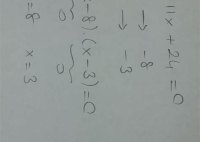 11x + 24 = 0
→ -8
→ -3
-8) (x - 3) = 0
0 0
= 8 x = 3